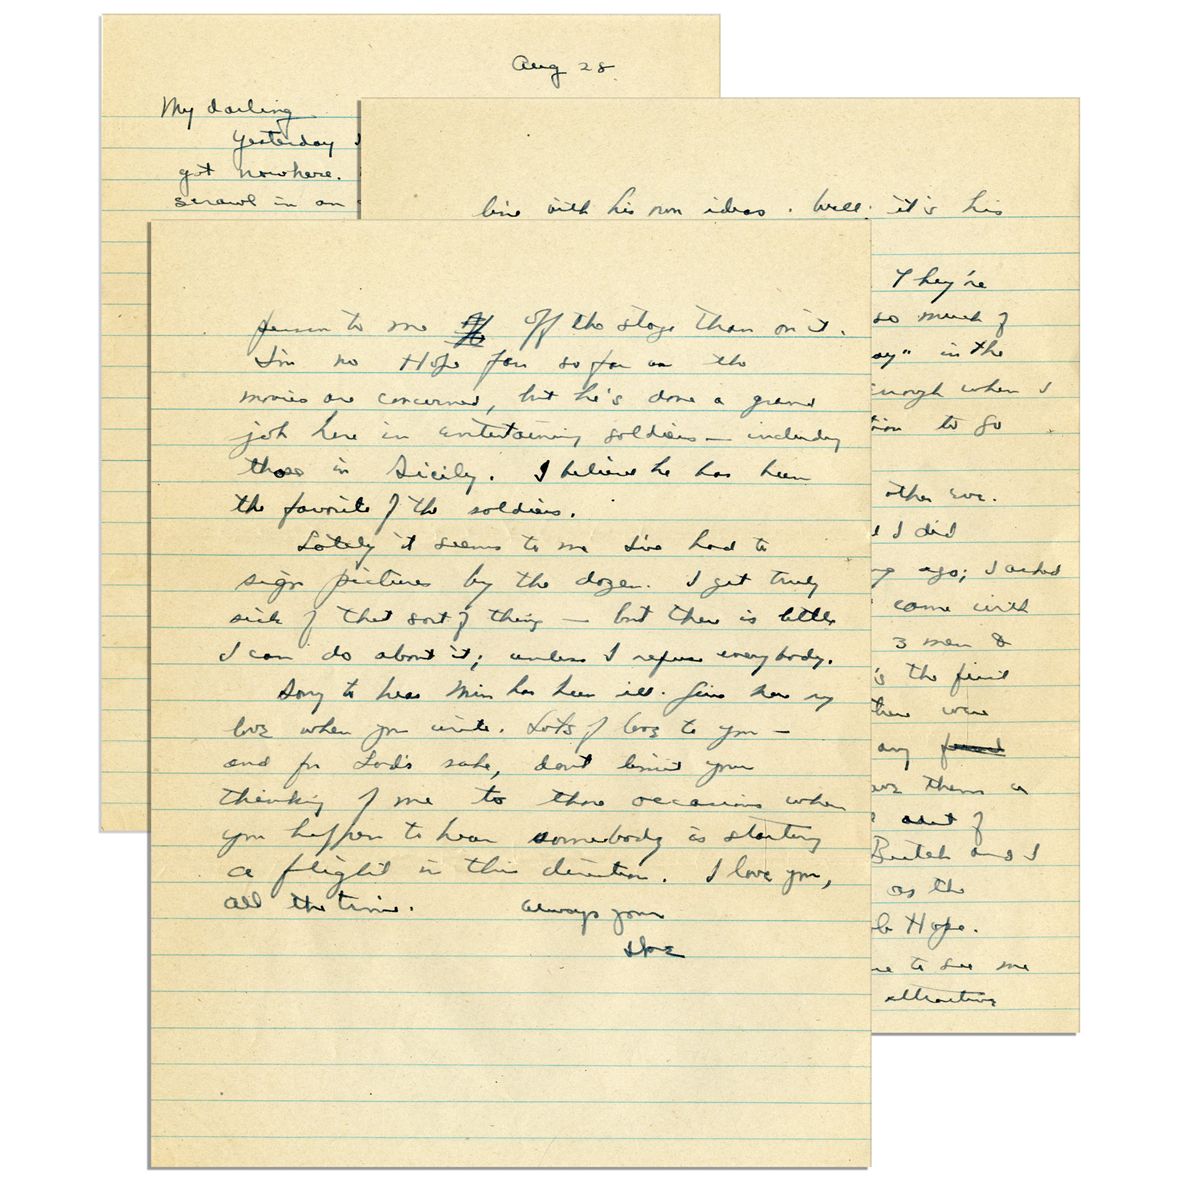 Aug 28.
My darling
Yesterday I
got nowhere.
scrawl in an
line with his own ideas. Well: it's his
They're
so much of
" in the
enough when I
to go
other eve.
I did
ago; I asked
come with
3 men &
's the first
there were
any
them a
sort of
British and I
as the
Hope.
to see me
attractive
person to me off the stage than on it.
I'm no Hope fan so far as the
movies are concerned, but he's done a grand
job here in entertaining soldiers — including
those in Sicily. I believe he has been
the favorite of the soldiers.
Lately it seems to me I've had to
sign pictures by the dozen. I get truly
sick of that sort of thing — but there is little
I can do about it; unless I refuse everybody.
Sorry to hear Min has been ill. Give her my
love when you write. Lots of love to you —
and for Lord's sake, don't limit your
thinking of me to those occasions when
you happen to hear somebody is starting
a flight in this direction. I love you,
all the time. Always your
Ike